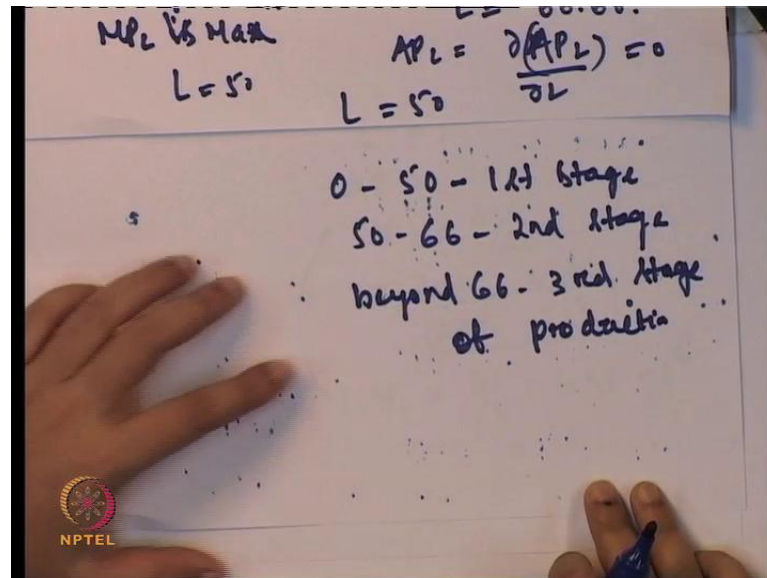 L = 66.66.
MPL is Max
APL = ∂(APL)/∂L = 0
L = 50
L = 50
0 - 50 - 1st Stage
50 - 66 - 2nd Stage
beyond 66 - 3rd. Stage
of production
NPTEL